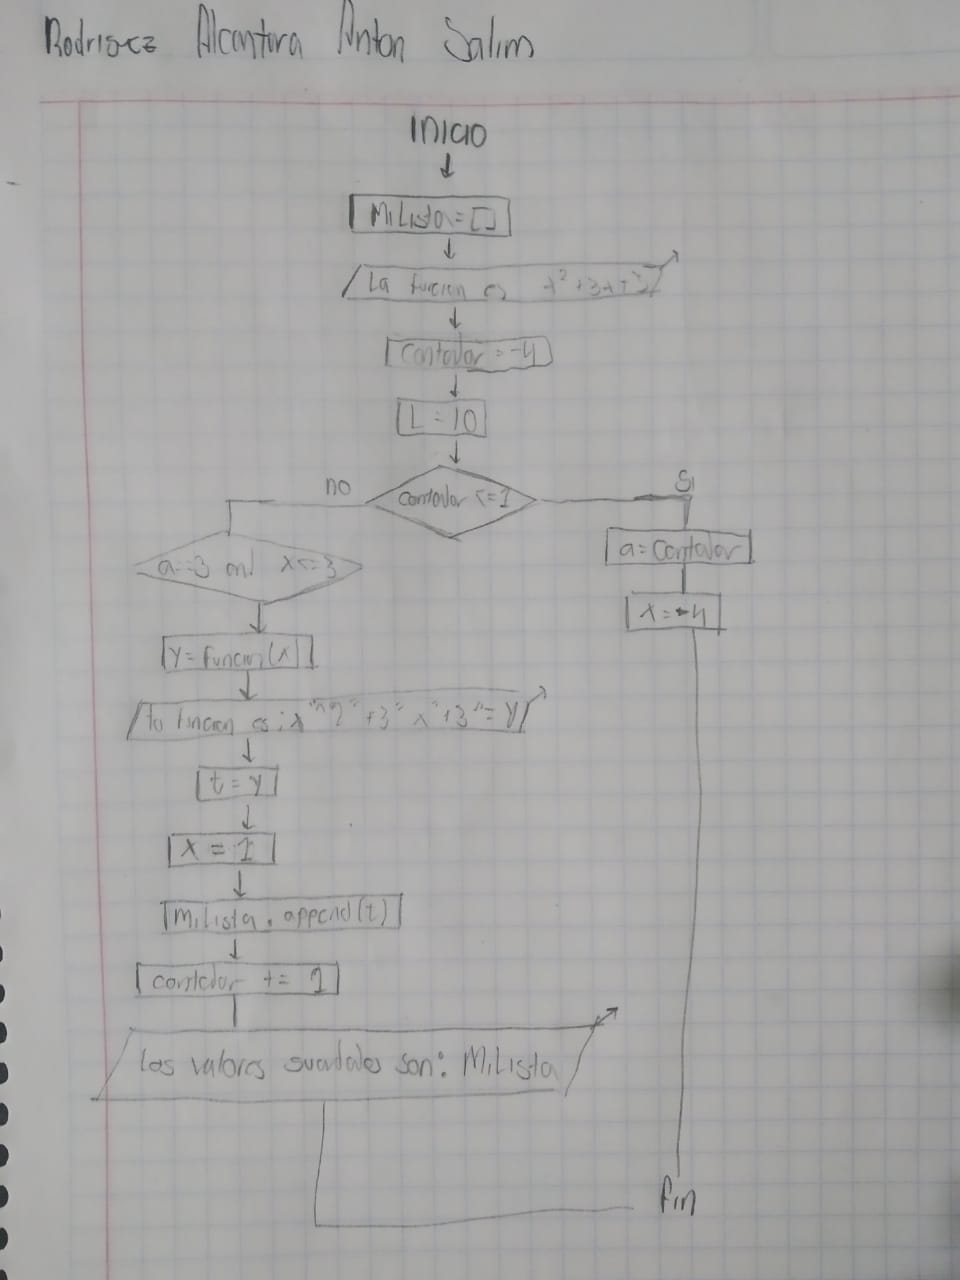 Rodriguez Alcantara Anton Salim
INICIO
MiLista = []
La funcion es x² + 3x + 3
Contador = -4
L = 10
no
contador <= 1
Si
a = Contador
a = -3 and x <= 3
x = -4
y = funcion(x)
tu funcion es: x "^2" +3" x "+3" = y
t = y
x = 1
MiLista.append(t)
contador += 1
Los valores guardados son: MiLista
Fin